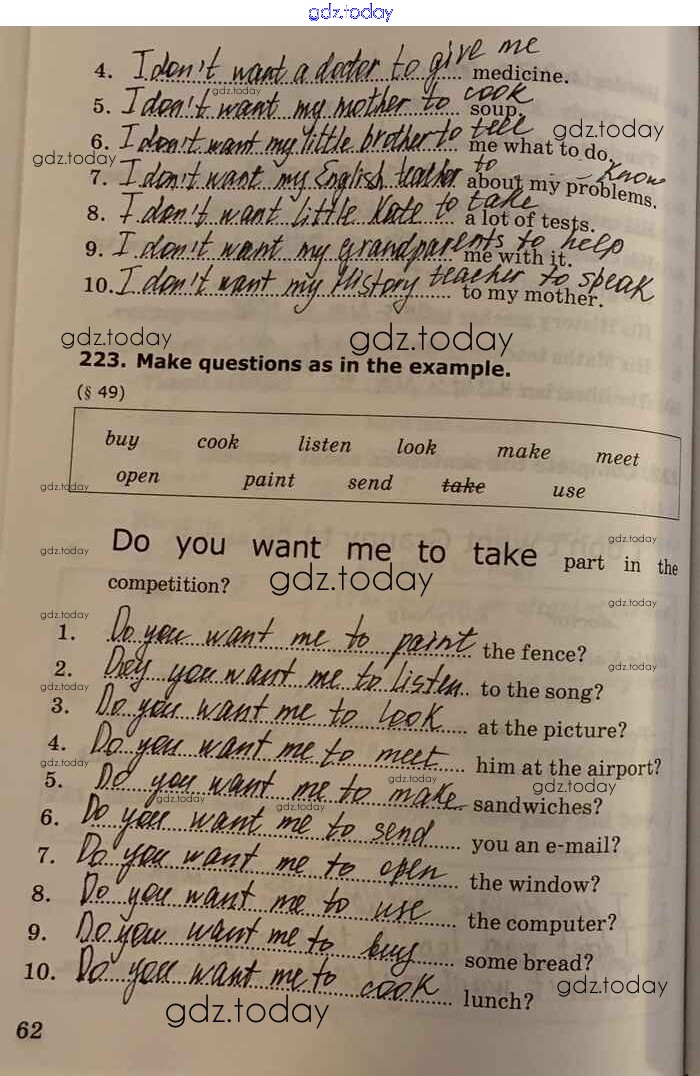 gdz.today
4. I don't want a doctor to give me medicine.
5. I don't want my mother to cook soup.
6. I don't want my little brother to tell me what to do.
7. I don't want my English teacher to know about my problems.
8. I don't want little Kate to take a lot of tests.
9. I don't want my grandparents to help me with it.
10. I don't want my History teacher to speak to my mother.
gdz.today
gdz.today
223. Make questions as in the example.
(§ 49)
buy cook listen look make meet
open paint send take use
Do you want me to take part in the
competition?
gdz.today
1. Do you want me to paint the fence?
2. Doy you want me to listen to the song?
3. Do you want me to look at the picture?
4. Do you want me to meet him at the airport?
5. Do you want me to make sandwiches?
6. Do you want me to send you an e-mail?
7. Do you want me to open the window?
8. Do you want me to use the computer?
9. Do you want me to buy some bread?
10. Do you want me to cook lunch?
gdz.today
gdz.today
62